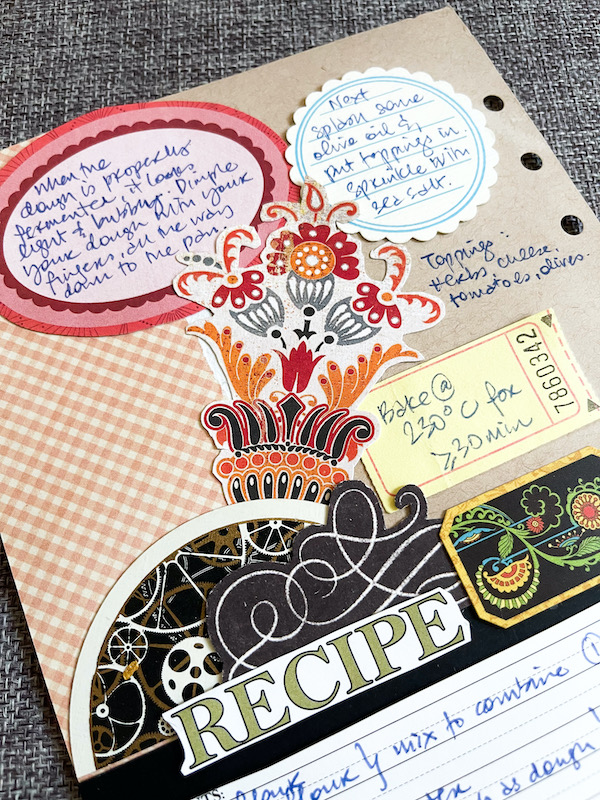 When the
dough is properly
fermented it looks
light & bubbly. Dimple
your dough with your
fingers, all the way
down to the pan.
Next
splash some
olive oil &
put topping in.
Sprinkle with
sea salt.
Toppings:
herbs, cheese,
tomatoes, olives.
Bake @
230°C for
30 min
7860342
RECIPE
mix to combine
as dough